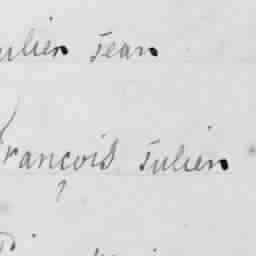 ulien Jean
François Julien